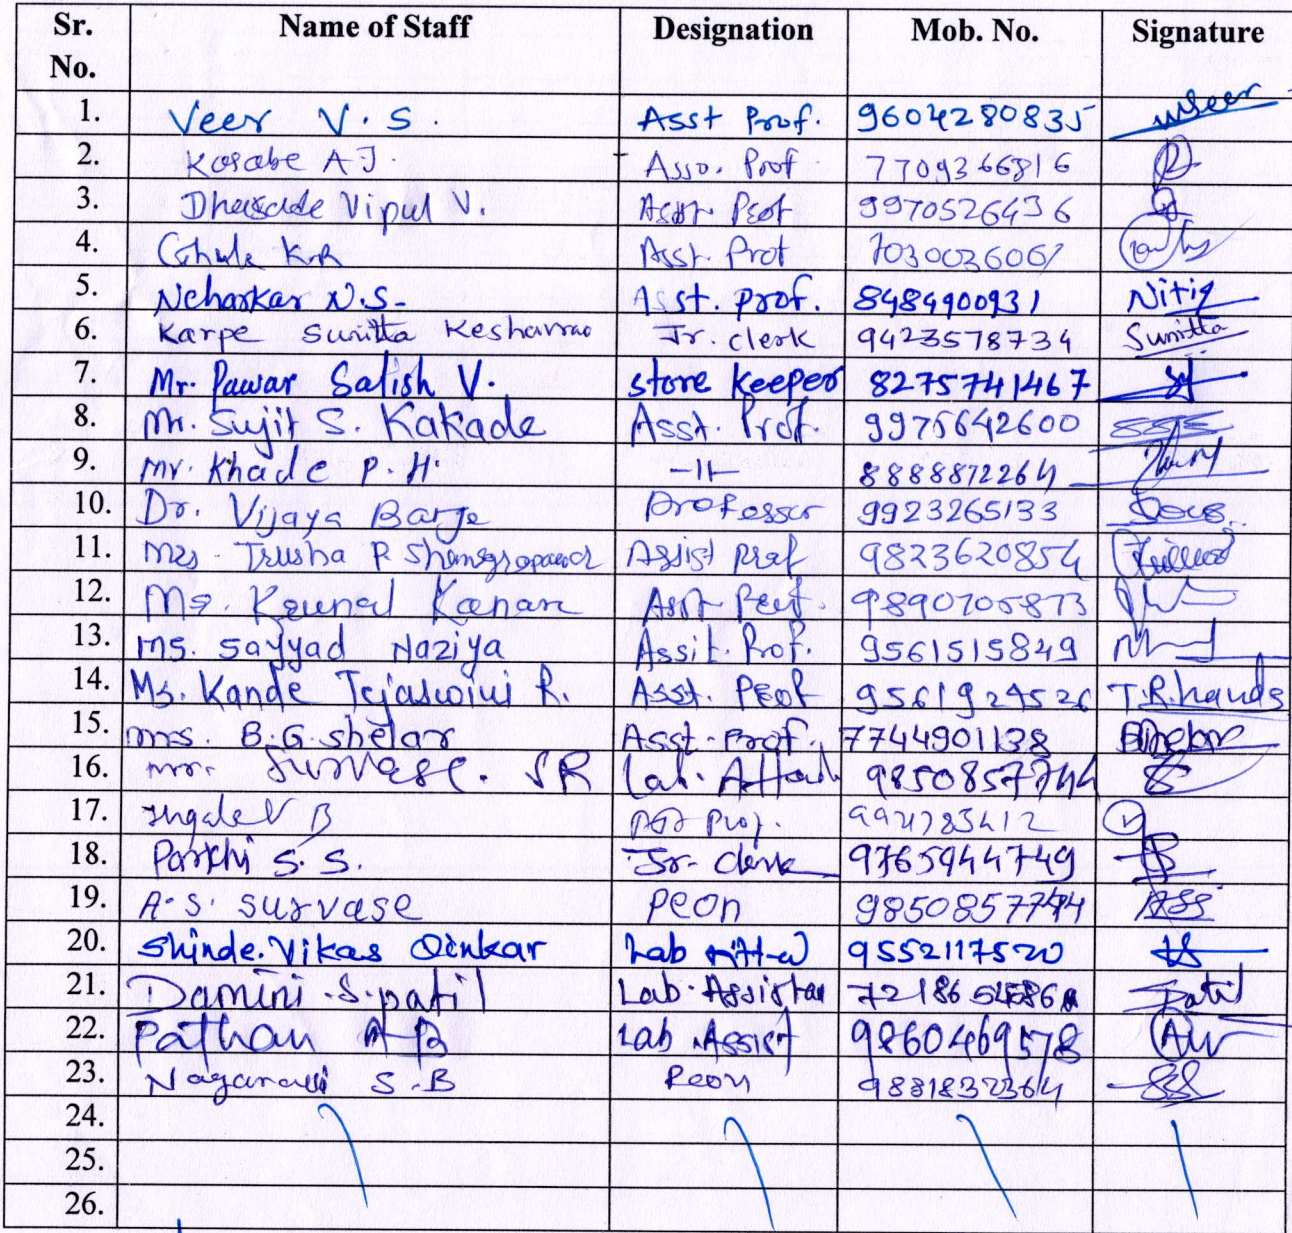 Sr. No. Name of Staff Designation Mob. No. Signature
1. Veer V. S. Asst Prof. 9604280835
2. Kosabe A J. Asso. Prof 7709366816
3. Dhasade Vipul V. Asst. Prof 9970526436
4. Ghule K.R Asst. Prof 7030036061
5. Neharkar N.S. Asst. prof. 8484900931 Nitin
6. Karpe Sunitta Keshavrao Jr. clerk 9423578734 Sunitta
7. Mr. Pawar Satish V. store keeper 8275741467
8. Mr. Sujit S. Kakade Asst. Prof. 9975642600
9. Mr. Khade P. H. -11- 8888872264
10. Dr. Vijaya Barge professor 9923265133
11. Mrs. Trusha P. Assist Prof 9823620854
12. Kunal Asst. Prof. 9890705873
13. Ms. Sayyad Naziya Assit. Prof. 9561515849
14. Ms. Kande Tejaswini R. Asst. Prof 9561924526 T.R.kande
15. mrs. B.G. shelar Asst. Prof. 7744901138
16. mr. Survase. SR Lab. 9850857744
17. Ingale V B
18. Parkhi S. S. Jr. clerk 9765944749
19. A. S. survase peon 9850857744
20. Shinde. Vikas Dinkar Lab 9552117520
21. Damini .S. patil Lab. Assistan Patil
22. Pathan A B Lab .Assist 9860469578
23. S.B Peon 9881832364
24.
25.
26.